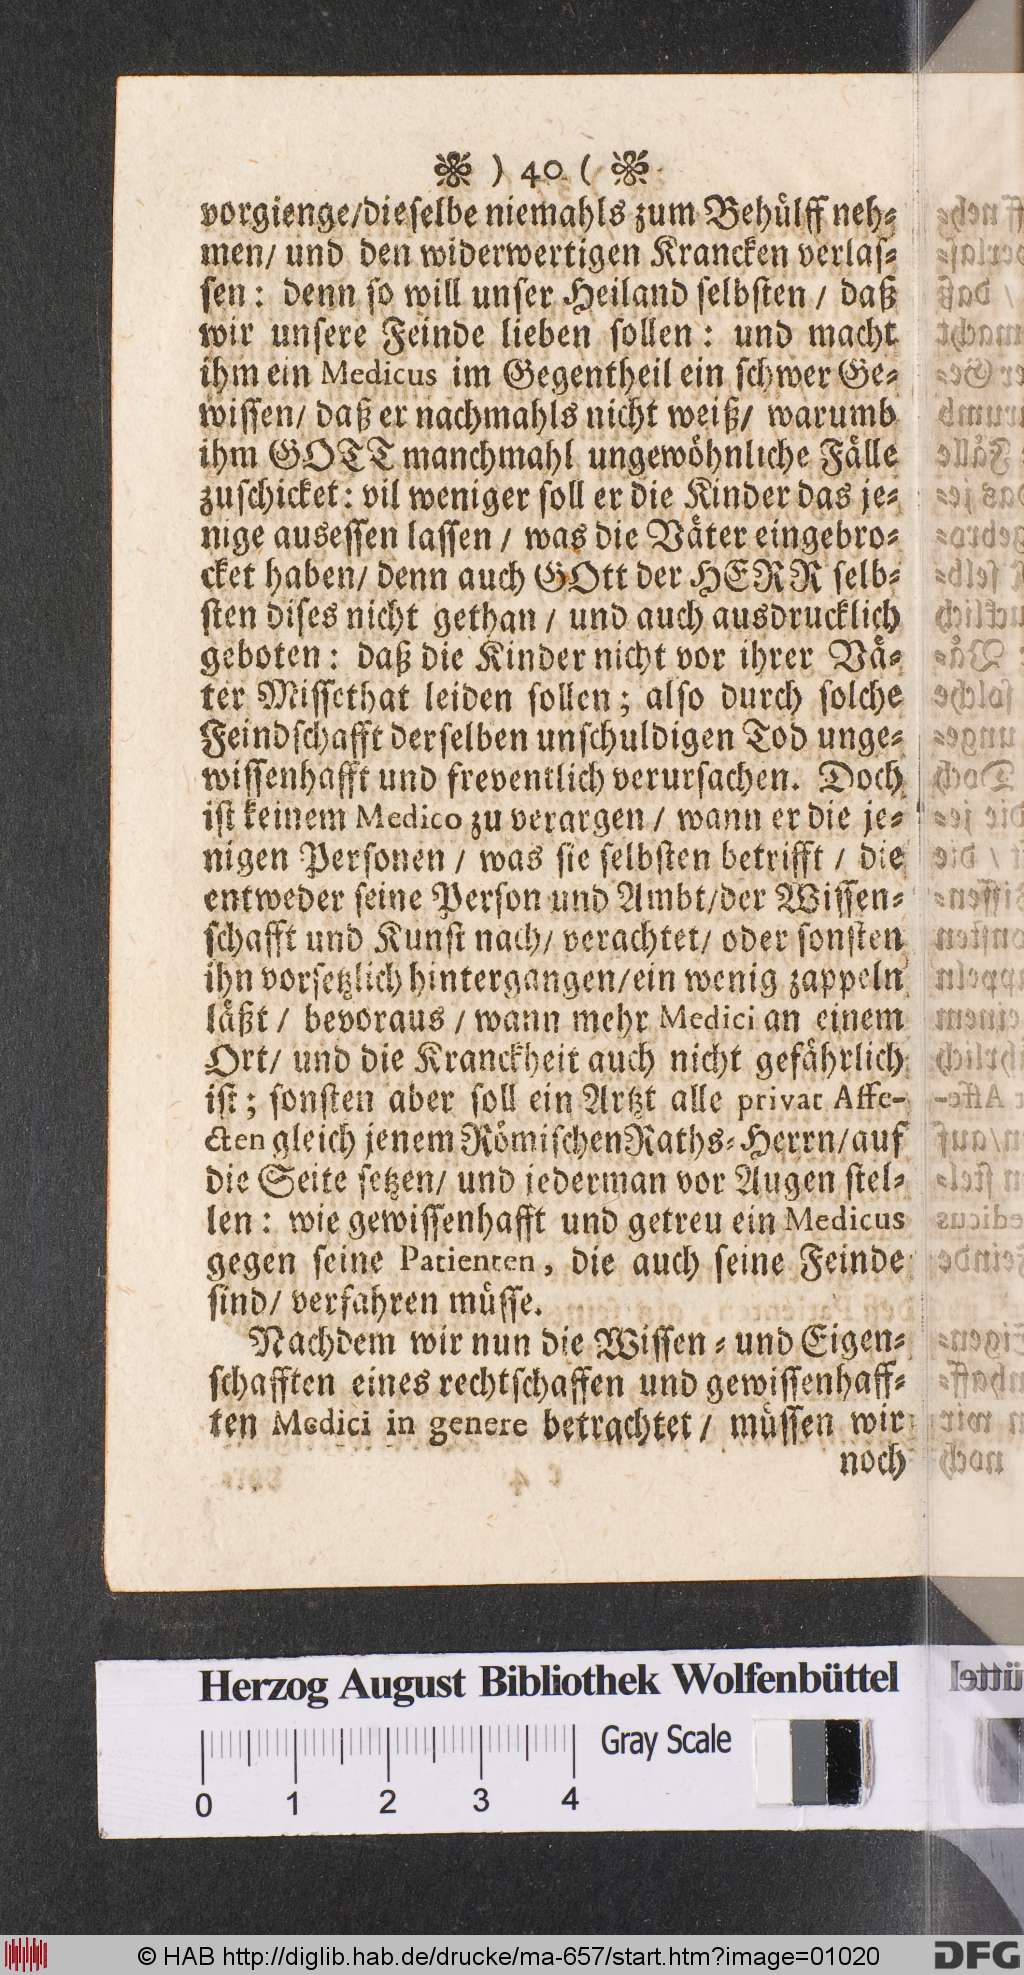 ) 40 (
vorgienge/dieselbe niemahls zum Behülff neh-
men/ und den widerwertigen Krancken verlas-
sen: denn so will unser Heiland selbsten / daß
wir unsere Feinde lieben sollen: und macht
ihm ein Medicus im Gegentheil ein schwer Ge-
wissen/ daß er nachmahls nicht weiß/ warumb
ihm GOTT manchmahl ungewöhnliche Fälle
zuschicket: vil weniger soll er die Kinder das je-
nige ausessen lassen / was die Väter eingebro-
cket haben/ denn auch GOtt der HERR selb-
sten dises nicht gethan / und auch ausdrucklich
geboten: daß die Kinder nicht vor ihrer Vä-
ter Missethat leiden sollen; also durch solche
Feindschafft derselben unschuldigen Tod unge-
wissenhafft und freventlich verursachen. Doch
ist keinem Medico zu verargen / wann er die je-
nigen Personen / was sie selbsten betrifft / die
entweder seine Person und Ambt/der Wissen-
schafft und Kunst nach/ verachtet/ oder sonsten
ihn vorsetzlich hintergangen/ein wenig zappeln
läßt / bevoraus / wann mehr Medici an einem
Ort/ und die Kranckheit auch nicht gefährlich
ist; sonsten aber soll ein Artzt alle privat Affe-
cten gleich jenem Römischen Raths-Herrn/auf
die Seite setzen/ und jederman vor Augen stel-
len: wie gewissenhafft und getreu ein Medicus
gegen seine Patienten, die auch seine Feinde
sind/ verfahren müsse.
Nachdem wir nun die Wissen- und Eigen-
schafften eines rechtschaffen und gewissenhaff-
ten Medici in genere betrachtet / müssen wir
noch
Herzog August Bibliothek Wolfenbüttel
Gray Scale
0 1 2 3 4
© HAB http://diglib.hab.de/drucke/ma-657/start.htm?image=01020
DFG